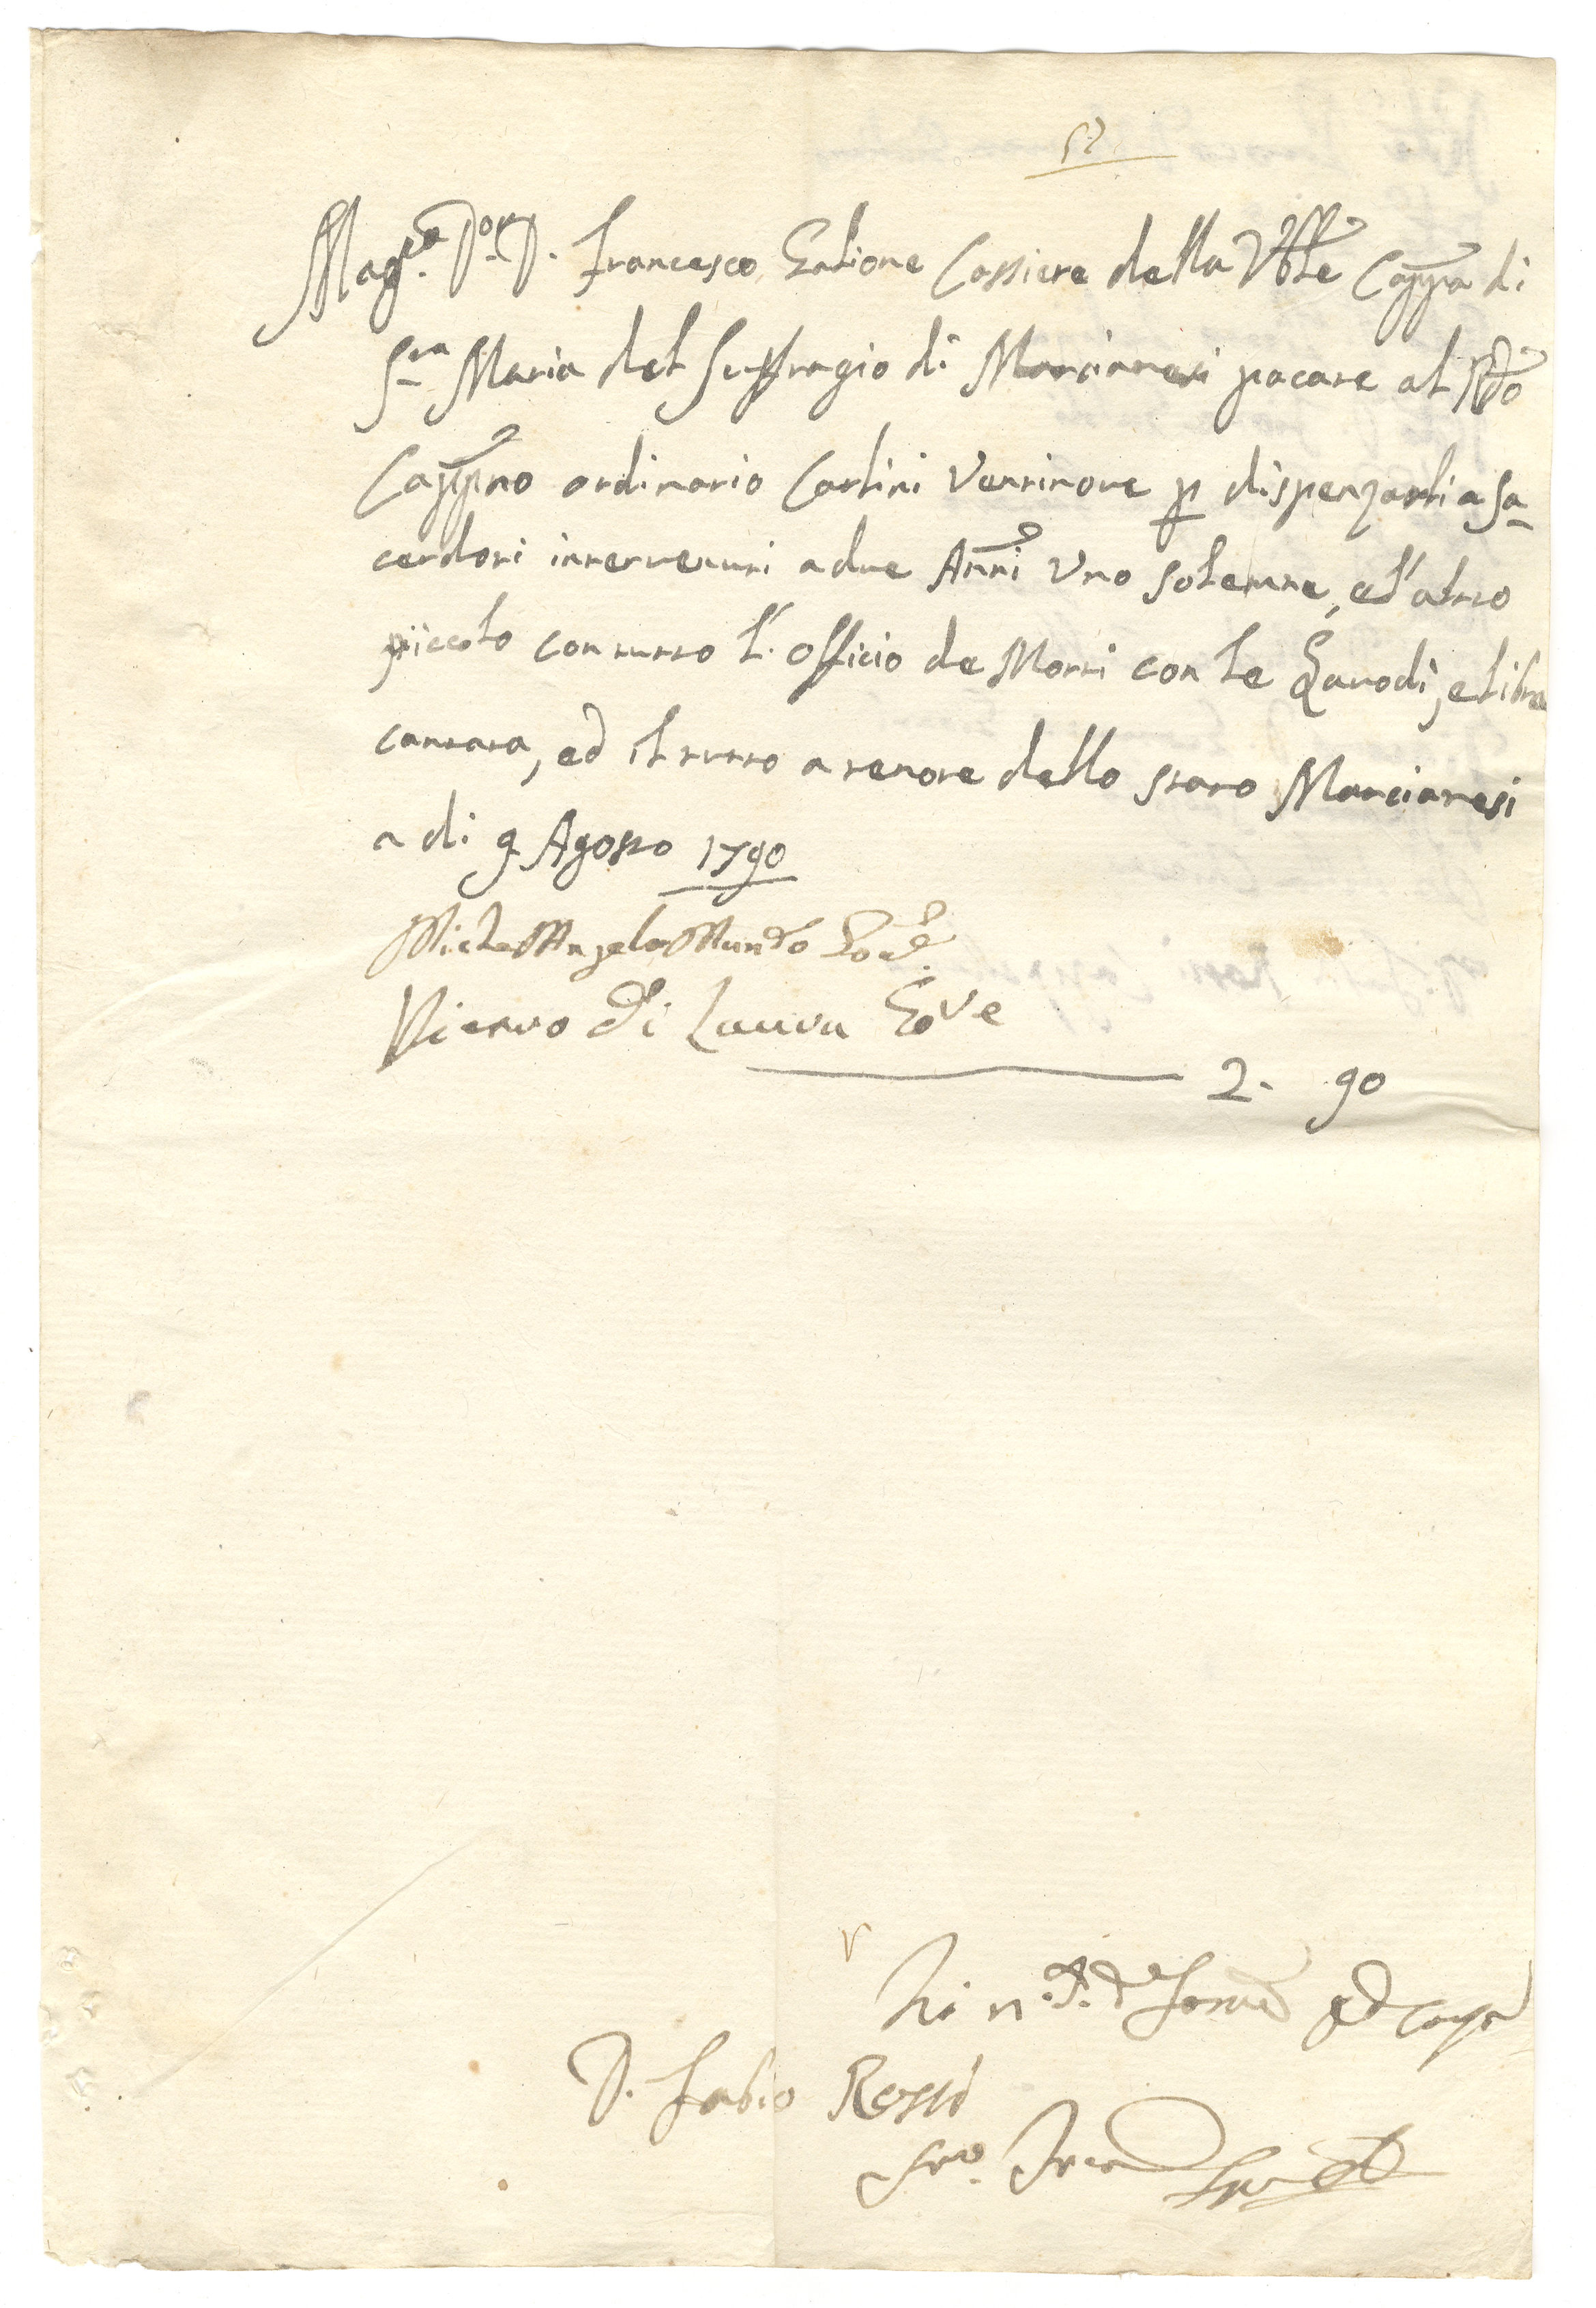 52
Mag.co D.r D. Francesco Galione Cassiere della Vble Cappa di
S.ta Maria del Suffragio di Marcianesi pacare al Rdo
Cappno ordinario Carlini Ventinove p dispenzarli a Sa
cerdoti intervenuti a due Anni Uno Solenne, ed'altro
piccolo con tutto l'officio de Morti con le Laudi, e libra
cantata, ed il tutto a tenore dello stato Marcianesi
a di 9 Agosto 1790
Michel'Angelo Mundo Gov.e
Pietro di Laura Gove
2 - 90
D. Fabio Rossi